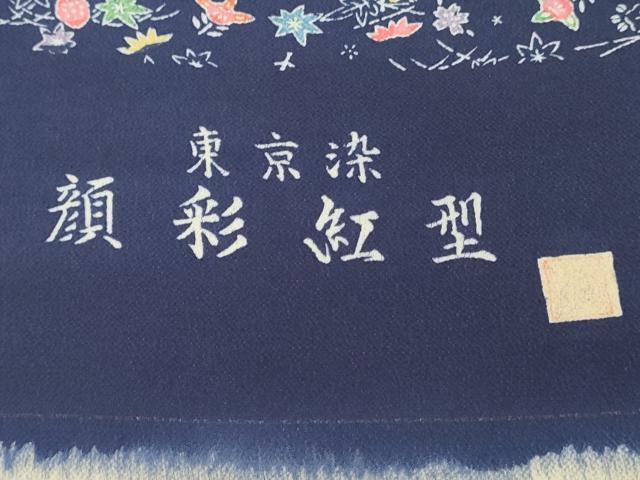 東京染
顔彩紅型